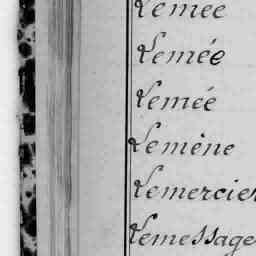 Lemee
Lemée
Lemée
Lemène
Lemercier
Lemessage